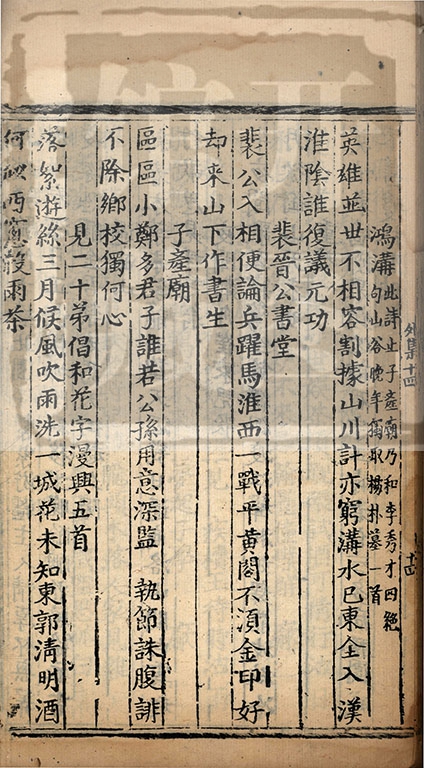 鴻溝 此詩止子產廟乃和李秀才四絕
句山谷晚年獨取楊朴墓一首
英雄並世不相容割據山川計亦窮溝水已東全入漢
淮陰誰復議元功
裴晉公書堂
裴公入相便論兵躍馬淮西一戰平黃閣不須金印好
却來山下作書生
子產廟
區區小鄭多君子誰若公孫用意深監執節誅腹誹
不除鄉校獨何心
見二十弟倡和花字漫興五首
落絮遊絲三月候風吹雨洗一城花未知東郭清明酒
何似西窓穀雨茶
外集十四
十四